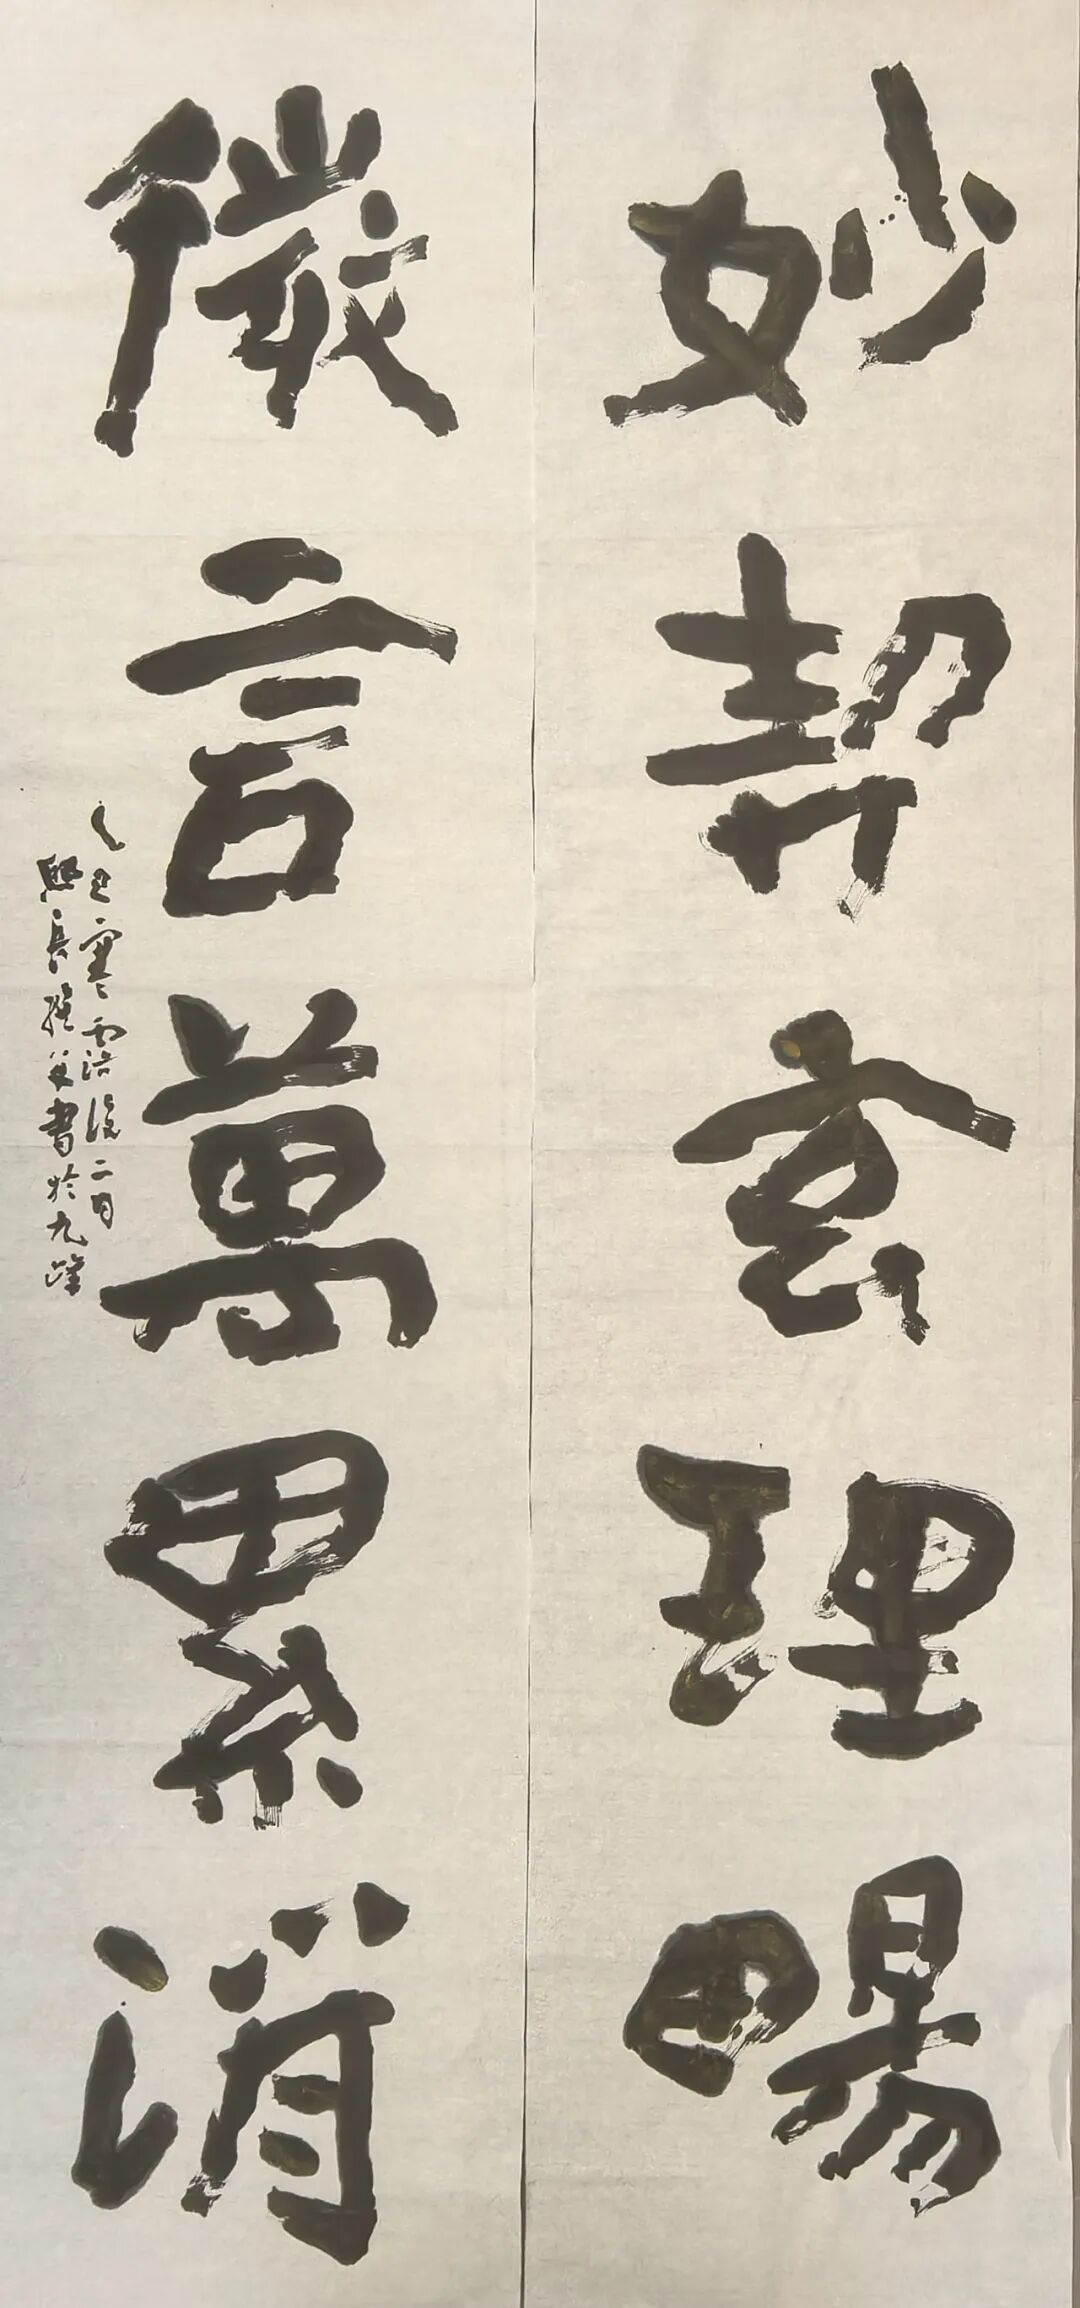 妙契玄理暢
微言萬累消
乙丑寒露後二日
熙長撰并書於九峰